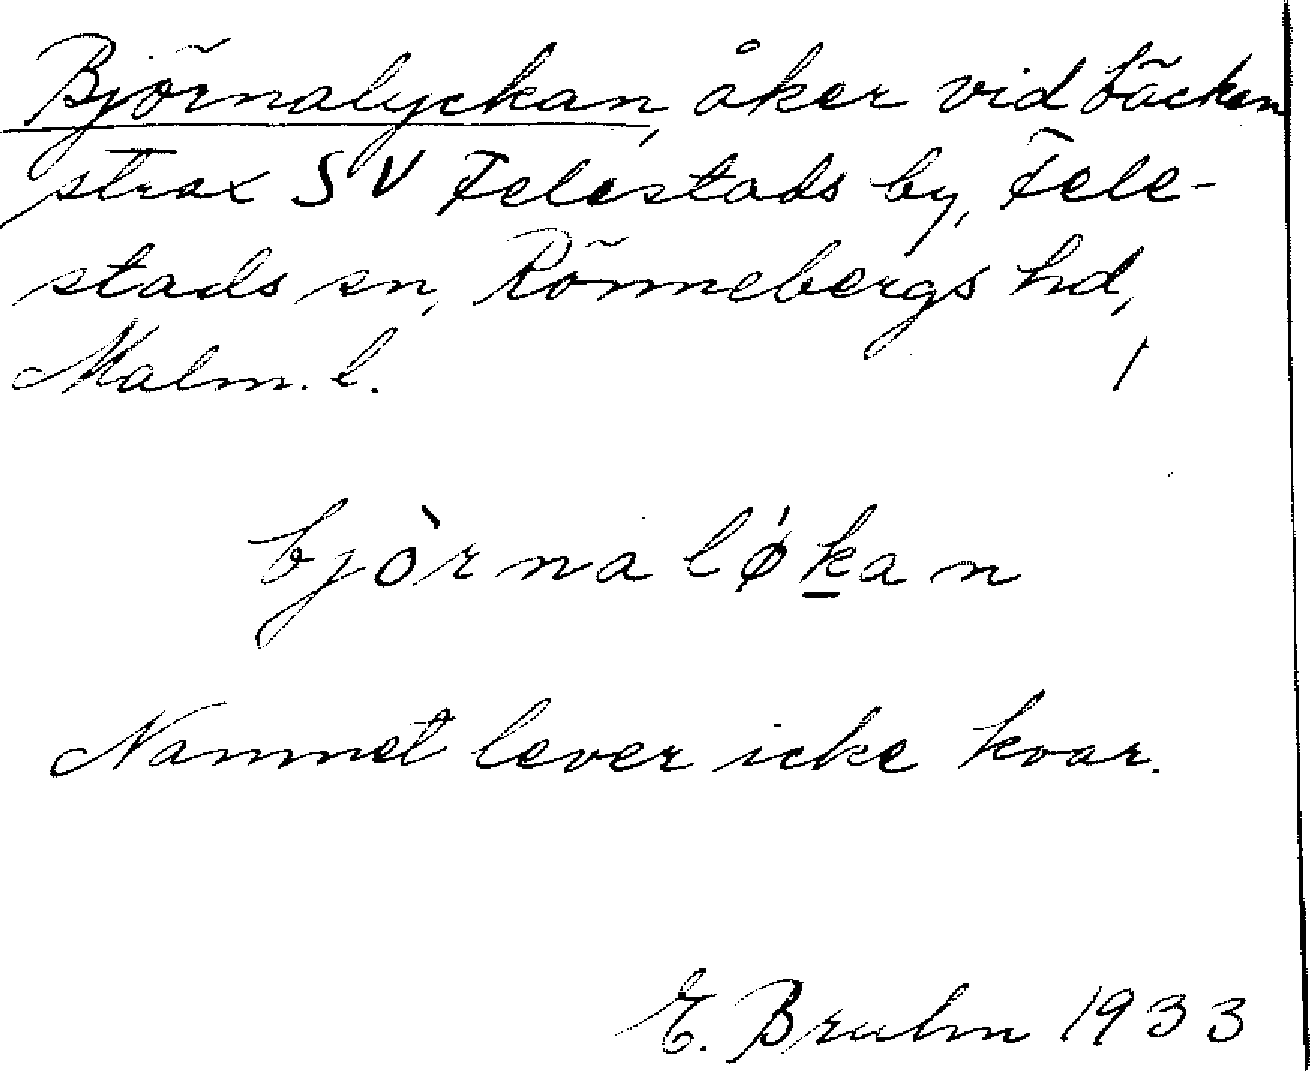 Björnalyckan, åker vid bäcken
strax SV Felestads by, Fele-
stads sn, Rönnebergs hd,
Malm. l. /
bjòrnaló̸kan
Namnet lever icke kvar.
E. Bruhn 1933